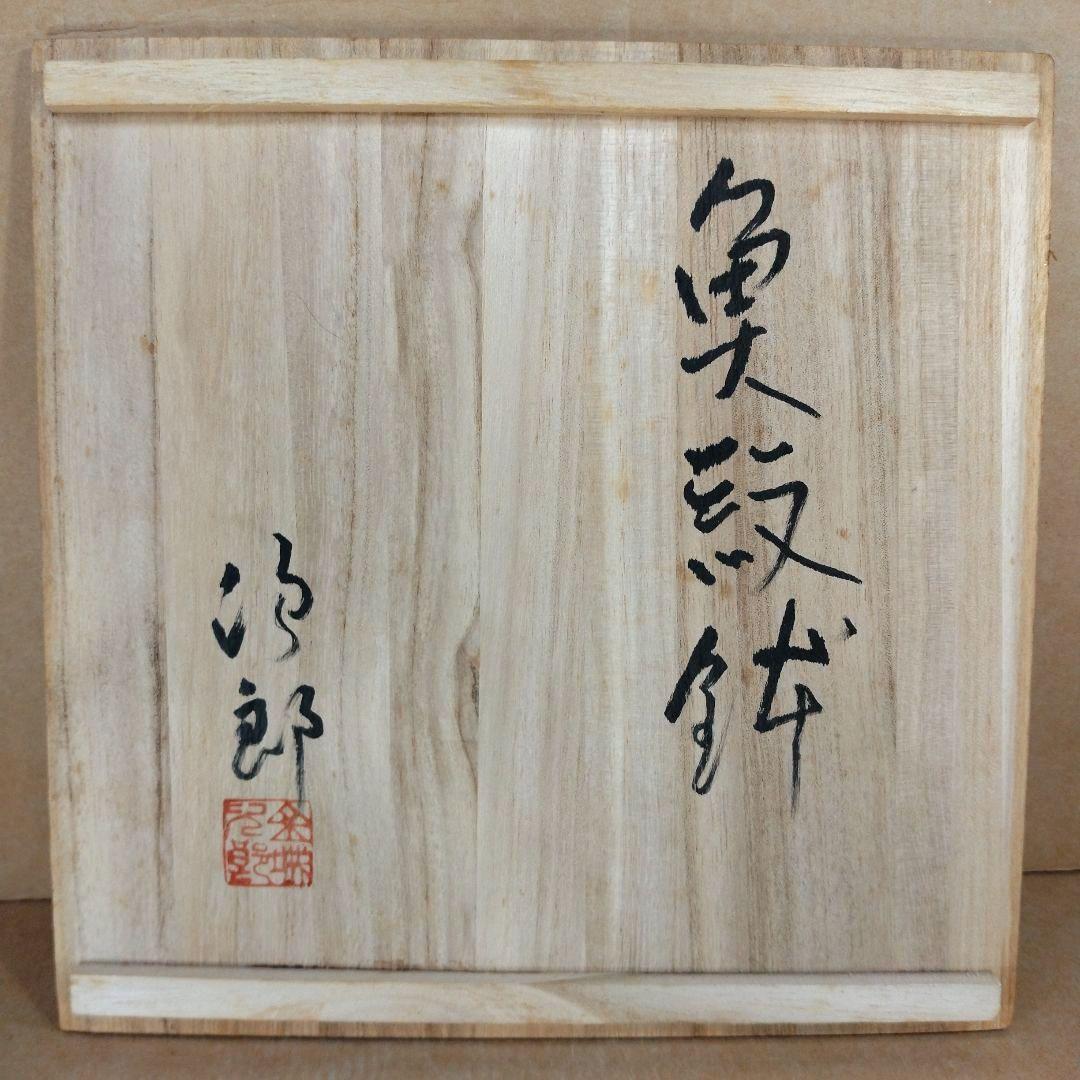 魚紋鉢
次郎